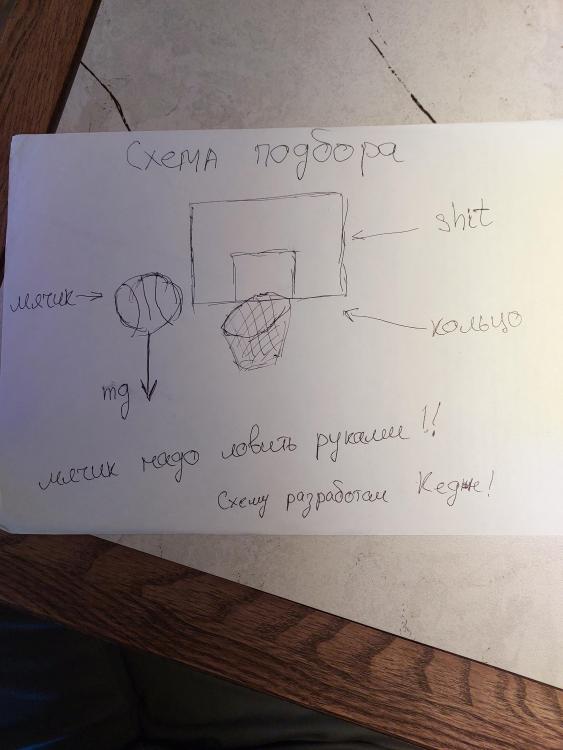 Схема подбора
shit
мячик
кольцо
mg
мячик надо ловить руками!!
Схему разработал Кедж!